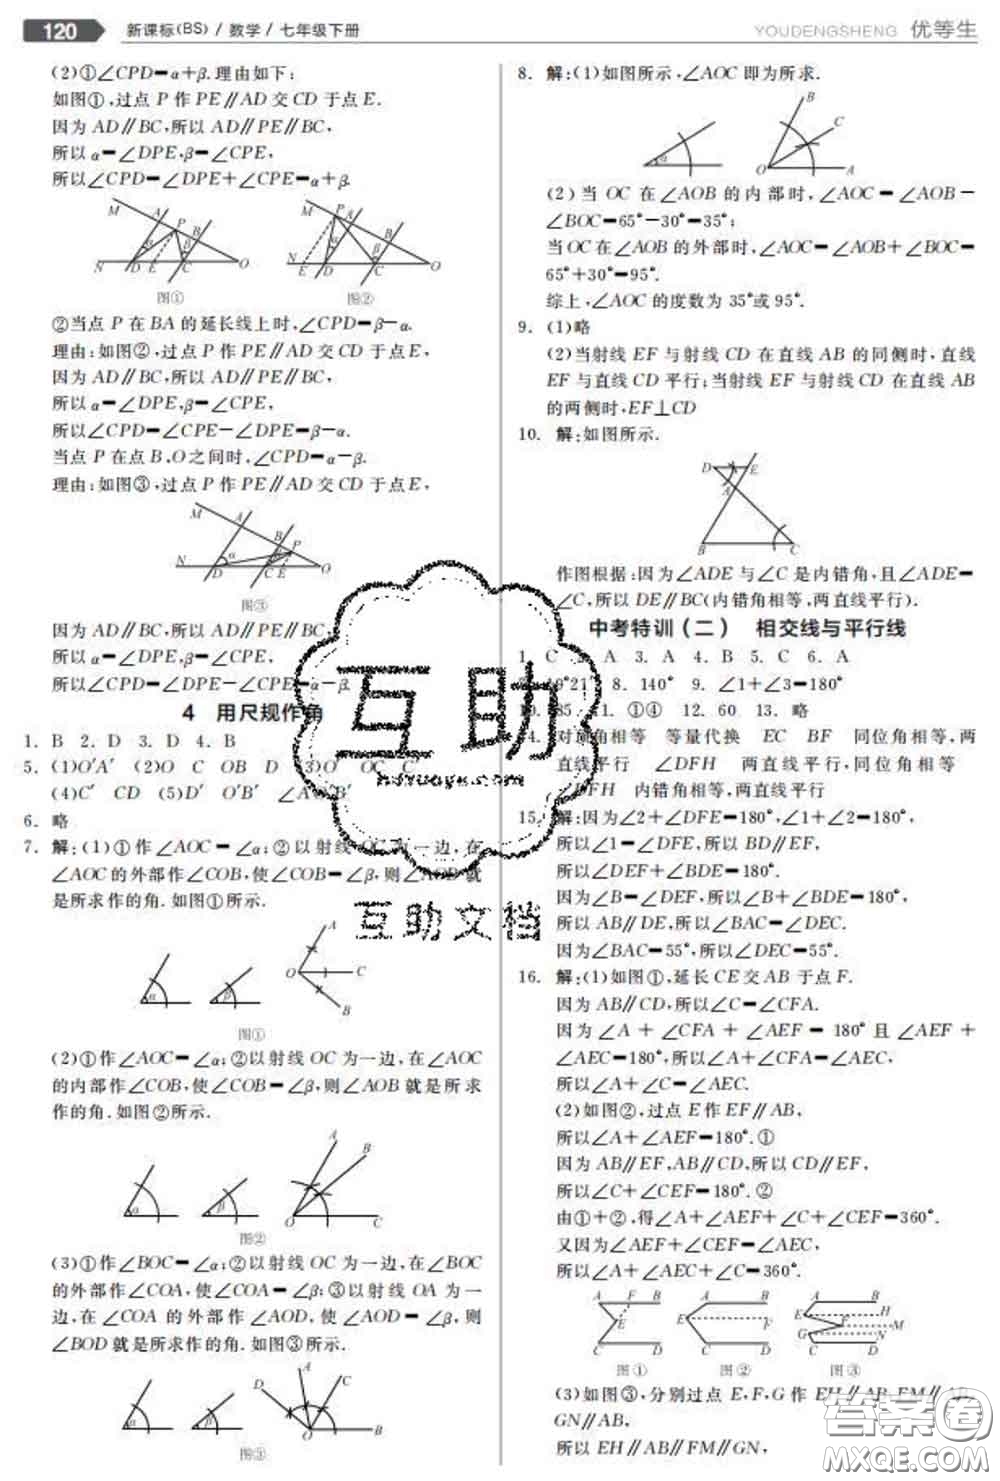 120 新课标(BS) / 数学 / 七年级下册
YOUDENGSHENG 优等生
(2)①∠CPD=α+β.理由如下:
如图①,过点 P 作 PE∥AD 交 CD 于点 E.
因为 AD∥BC,所以 AD∥PE∥BC,
所以 α=∠DPE,β=∠CPE,
所以∠CPD=∠DPE+∠CPE=α+β.
M A P B α β N D E C O
图①
M P A B α β N E D C O
图②
②当点 P 在 BA 的延长线上时,∠CPD=β-α.
理由:如图②,过点 P 作 PE∥AD 交 CD 于点 E,
因为 AD∥BC,所以 AD∥PE∥BC,
所以 α=∠DPE,β=∠CPE,
所以∠CPD=∠CPE-∠DPE=β-α.
当点 P 在点 B,O 之间时,∠CPD=α-β.
理由:如图③,过点 P 作 PE∥AD 交 CD 于点 E,
M A B P α N D C E O
图③
因为 AD∥BC,所以 AD∥PE∥BC,
所以 α=∠DPE,β=∠CPE,
所以∠CPD=∠DPE-∠CPE=α-β.
4 用尺规作角
1. B 2. D 3. D 4. B
5. (1)O′A′ (2)O C OB D (3)O′ OC C′
(4)C′ CD (5)D′ O′B′ ∠A′O′B′
6. 略
7. 解:(1)①作∠AOC=∠α;②以射线 OC 为一边,在
∠AOC 的外部作∠COB,使∠COB=∠β,则∠AOB 就
是所求作的角.如图①所示.
α β A O C B
图①
(2)①作∠AOC=∠α;②以射线 OC 为一边,在∠AOC
的内部作∠COB,使∠COB=∠β,则∠AOB 就是所求
作的角.如图②所示.
α β A B O C
图②
(3)①作∠BOC=∠α;②以射线 OC 为一边,在∠BOC
的外部作∠COA,使∠COA=∠β;③以射线 OA 为一
边,在∠COA 的外部作∠AOD,使∠AOD=∠β,则
∠BOD 就是所求作的角.如图③所示.
α β D A C O B
图③
8. 解:(1)如图所示,∠AOC 即为所求.
α B C O A
(2)当 OC 在∠AOB 的内部时,∠AOC=∠AOB-
∠BOC=65°-30°=35°;
当 OC 在∠AOB 的外部时,∠AOC=∠AOB+∠BOC=
65°+30°=95°.
综上,∠AOC 的度数为 35°或 95°.
9. (1)略
(2)当射线 EF 与射线 CD 在直线 AB 的同侧时,直线
EF 与直线 CD 平行;当射线 EF 与射线 CD 在直线 AB
的两侧时,EF⊥CD
10. 解:如图所示.
D E A B C
作图根据:因为∠ADE 与∠C 是内错角,且∠ADE=
∠C,所以 DE∥BC(内错角相等,两直线平行).
中考特训(二) 相交线与平行线
1. C A 3. A 4. B 5. C 6. A
21′ 8. 140° 9. ∠1+∠3=180°
85 11. ①④ 12. 60 13. 略
14. 对顶角相等 等量代换 EC BF 同位角相等,两
直线平行 ∠DFH 两直线平行,同位角相等
∠DFH 内错角相等,两直线平行
15. 解:因为∠2+∠DFE=180°,∠1+∠2=180°,
所以∠1=∠DFE,所以 BD∥EF,
所以∠DEF+∠BDE=180°.
因为∠B=∠DEF,所以∠B+∠BDE=180°,
所以 AB∥DE,所以∠BAC=∠DEC.
因为∠BAC=55°,所以∠DEC=55°.
16. 解:(1)如图①,延长 CE 交 AB 于点 F.
因为 AB∥CD,所以∠C=∠CFA.
因为∠A+∠CFA+∠AEF=180°且∠AEF+
∠AEC=180°,所以∠A+∠CFA=∠AEC,
所以∠A+∠C=∠AEC.
(2)如图②,过点 E 作 EF∥AB,
所以∠A+∠AEF=180°.①
因为 AB∥EF,AB∥CD,所以 CD∥EF,
所以∠C+∠CEF=180°.②
由①+②,得∠A+∠AEF+∠C+∠CEF=360°.
又因为∠AEF+∠CEF=∠AEC,
所以∠A+∠AEC+∠C=360°.
A F B E C D
图①
A B E F C D
图②
A B E H F M G N C D
图③
(3)如图③,分别过点 E,F,G 作 EH∥AB,FM∥AB,
GN∥AB,
所以 EH∥AB∥FM∥GN,
互助
hdzuoye.com
互助文档
答案圈
MXQE.COM